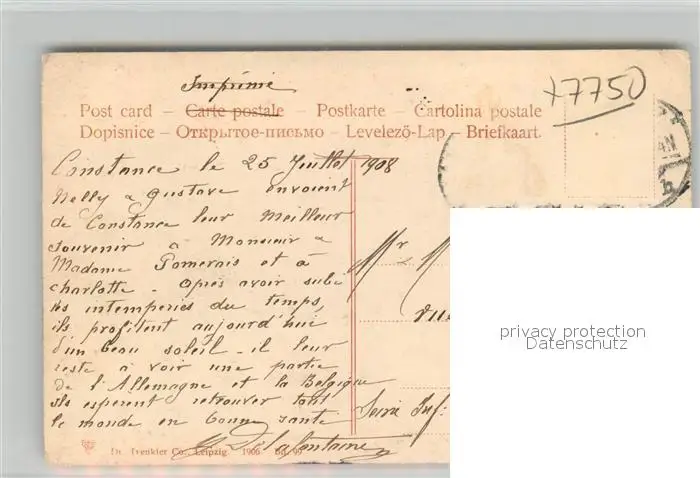 Imprimé
x7750
Post card – Carte postale – Postkarte – Cartolina postale
Dopisnice – Открытое-письмо – Levelező-Lap – Briefkaart.
Constance le 25 Juillet 1908
Nelly & Gustave envoient
de Constance leur meilleur
souvenir à Monsieur &
Madame Pomerais et à
Charlotte - Après avoir subi
les intemperies du temps,
ils profitent aujourd'hui
d'un beau soleil - il leur
reste à voir une partie
de l'Allemagne et la Belgique
ils esperent retrouver tout
le monde en bonne santé
G Delafontaine
Mr & M
rue
Seine Inf:
Dr. Trenkler Co., Leipzig 1906 Bd. 99
privacy protection
Datenschutz